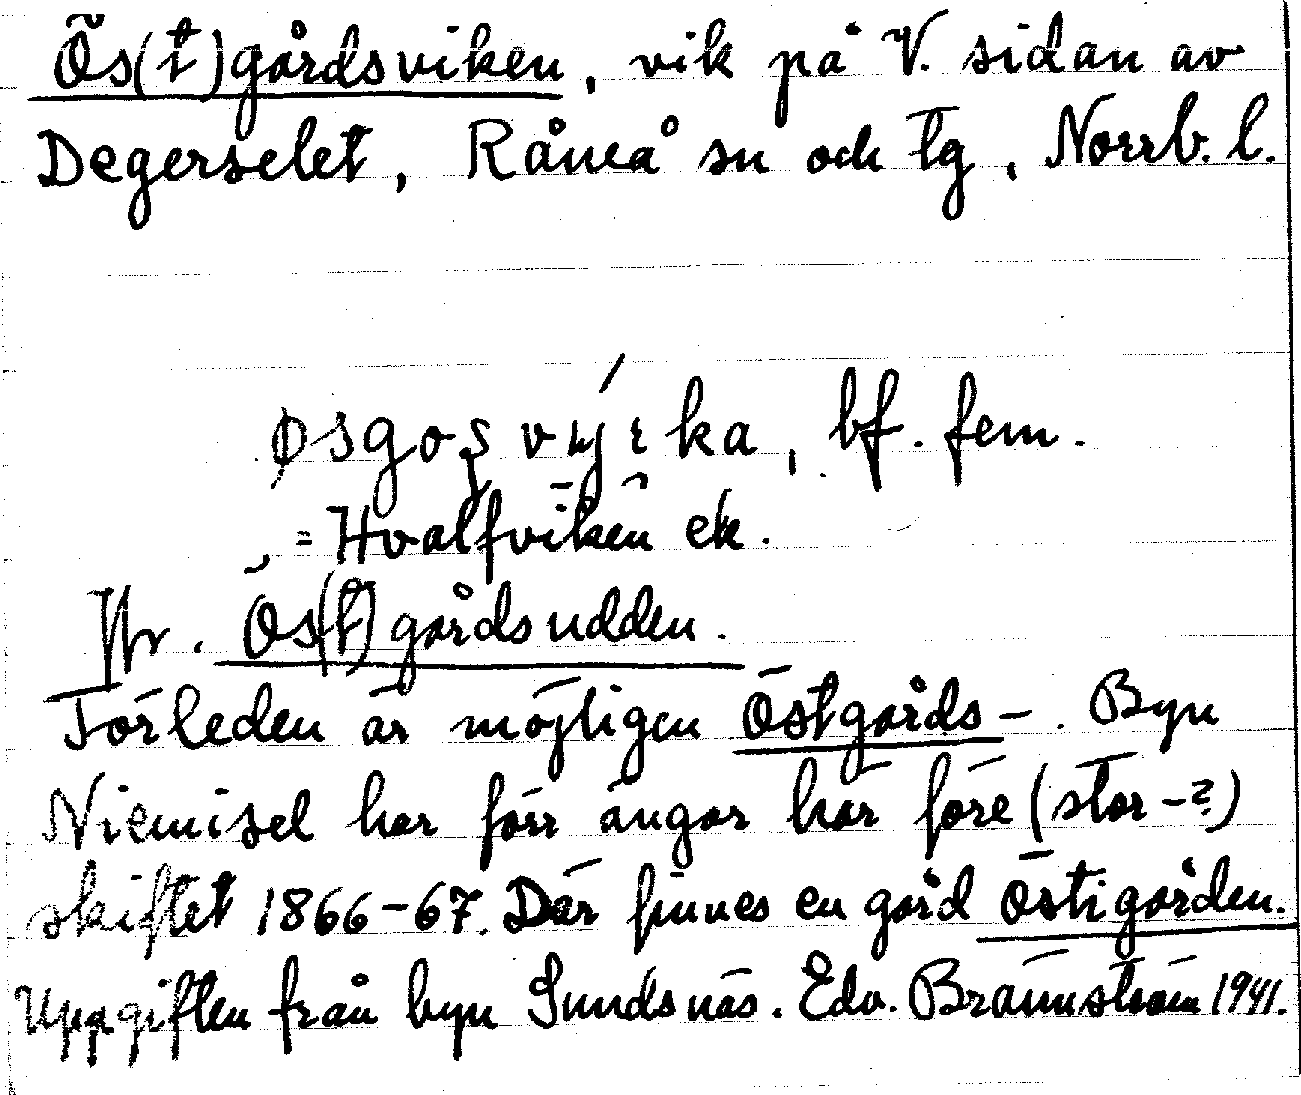 Ös(t)gårdsviken, vik på V. sidan av
Degerselet, Råneå sn och tg, Norrb. l.
bf. fem.
= Hvalfviken ek.
Jfr. Ös(t)gårdsudden.
Förleden är möjligen Östgårds-. Byn
Niemisel har förr ängar här före (stor-?)
skiftet 1866-67. Där finnes en gård Östigården.
Uppgiften från byn Sundsnäs. Edv. Brännström 1941.